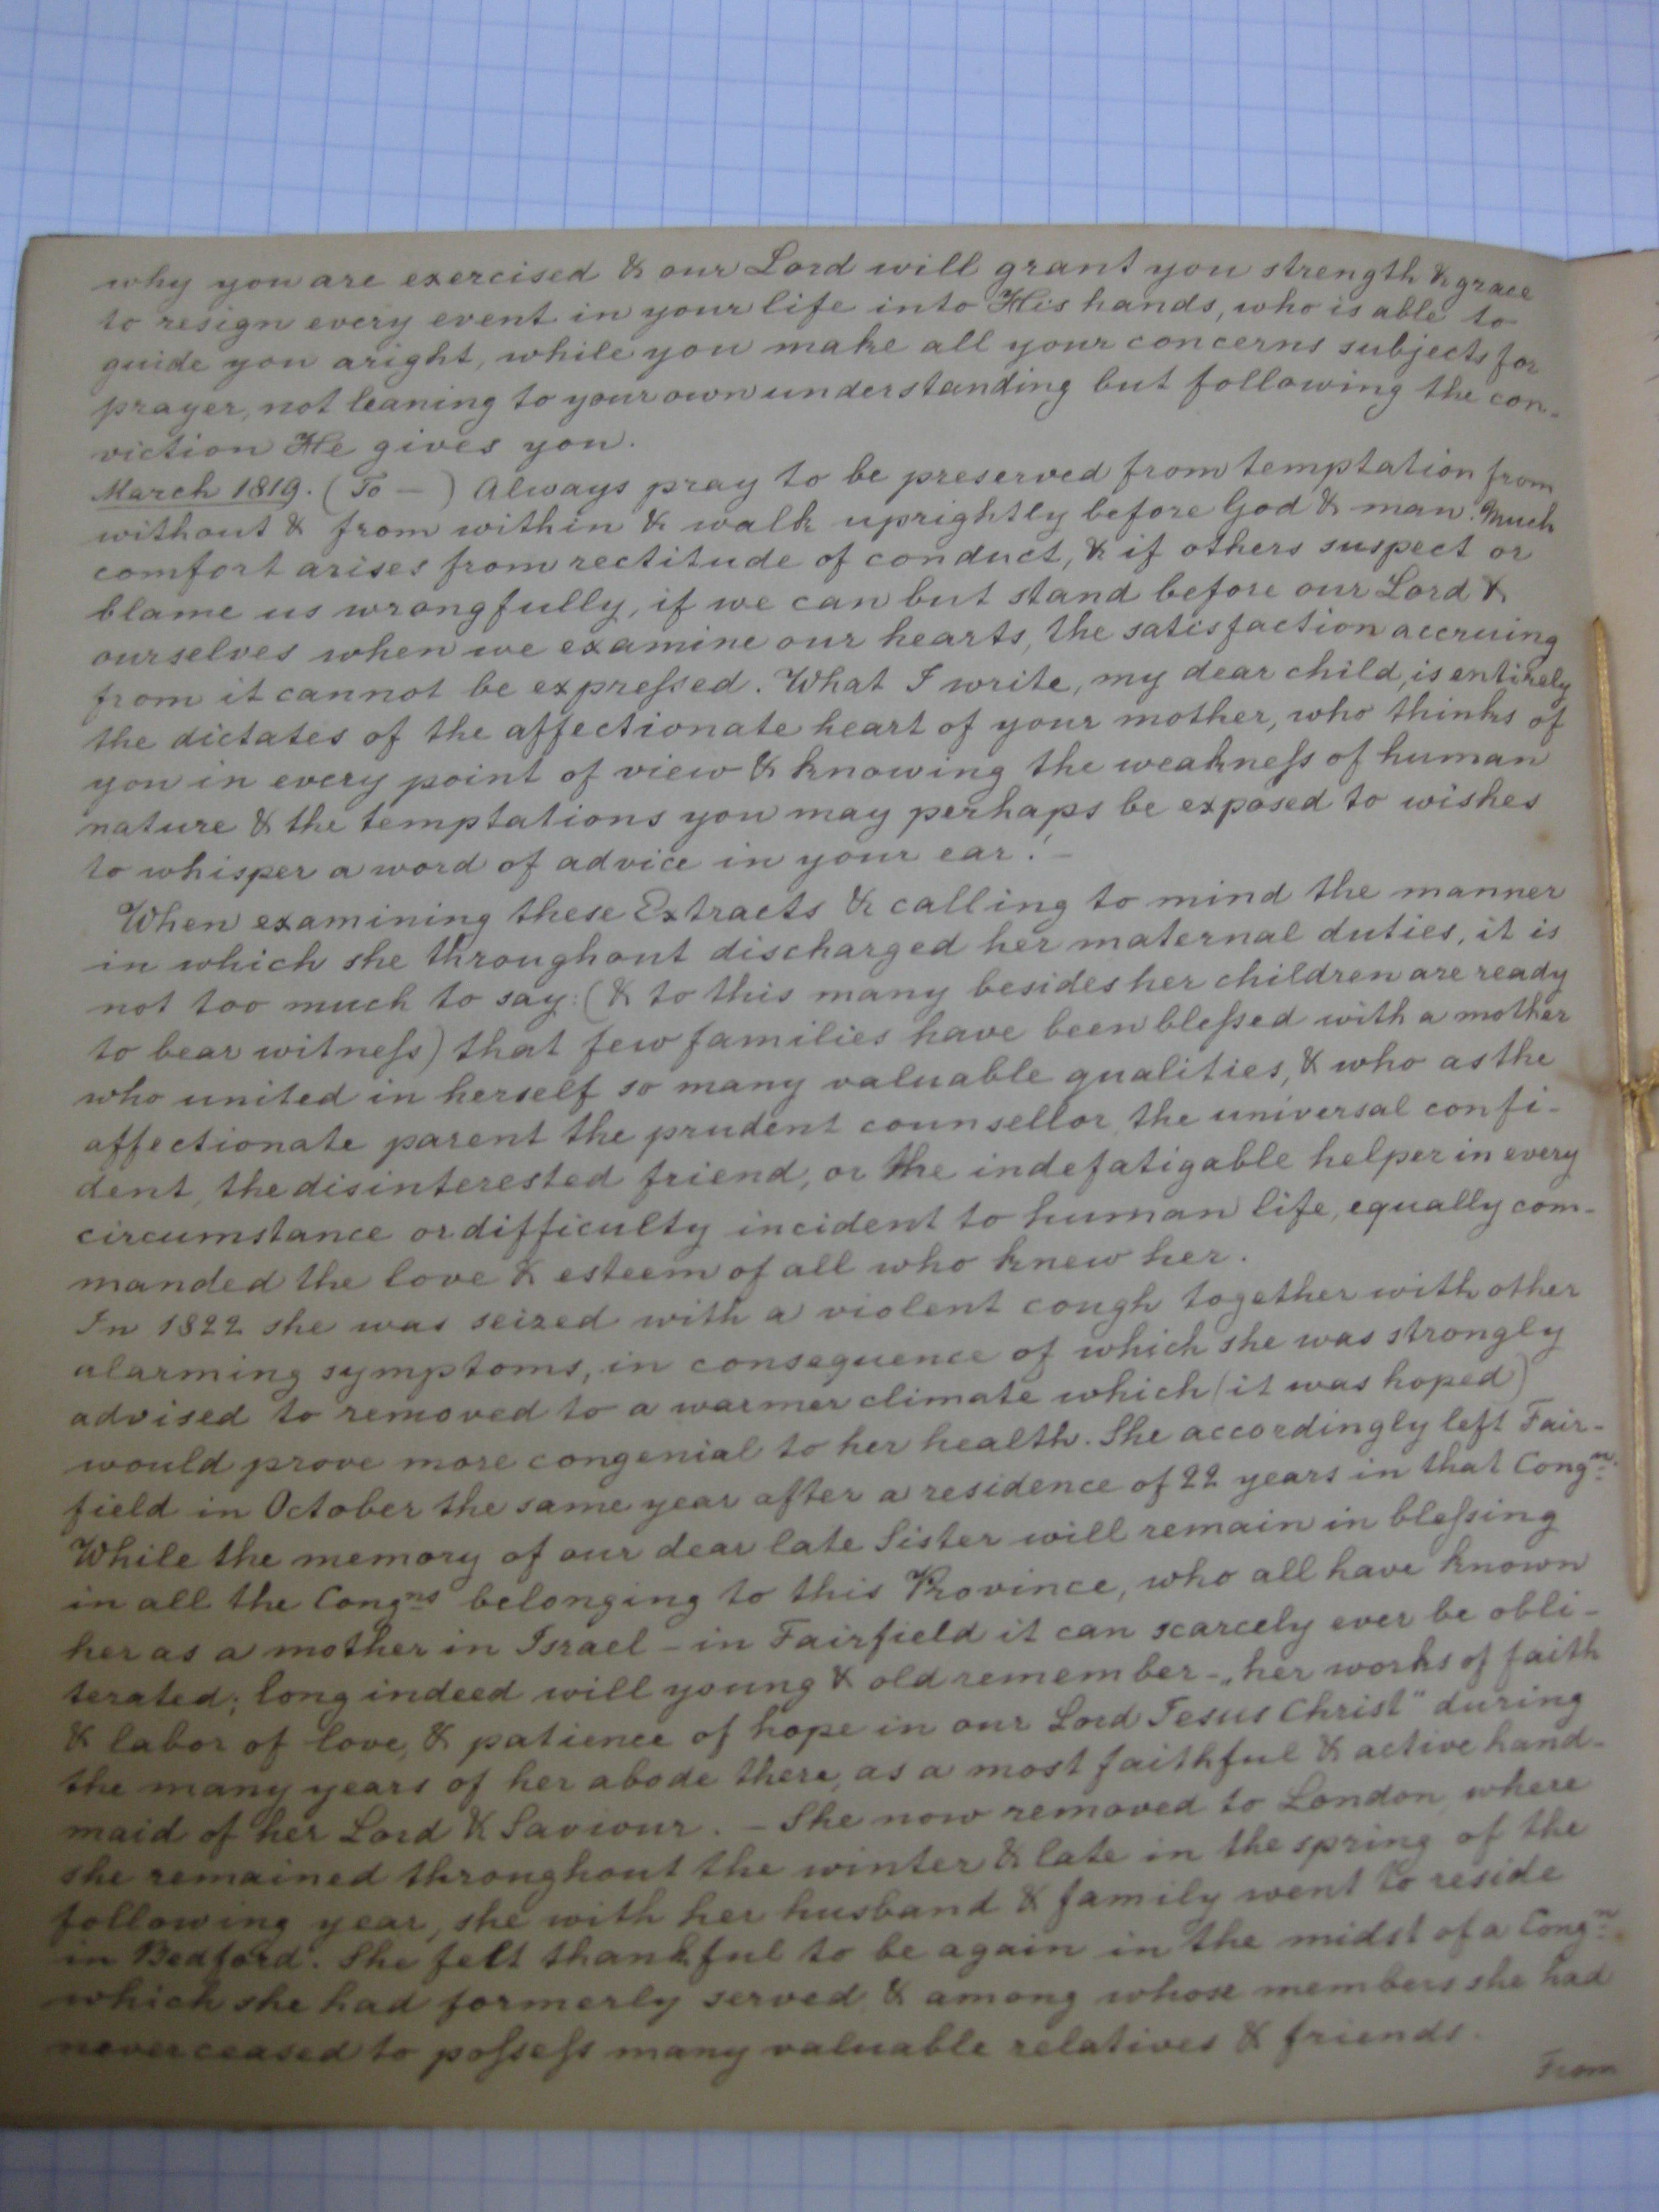 why you are exercised & our Lord will grant you strength & grace
to resign every event in your life into His hands, who is able to
guide you aright, while you make all your concerns subjects for
prayer, not leaning to your own understanding but following the con-
viction He gives you.
March 1819. (To — ) Always pray to be preserved from temptation from
without & from within & walk uprightly before God & man. Much
comfort arises from rectitude of conduct, & if others suspect or
blame us wrongfully, if we can but stand before our Lord &
ourselves when we examine our hearts, the satisfaction accruing
from it cannot be expreſsed. What I write, my dear child, is entirely
the dictates of the affectionate heart of your mother, who thinks of
you in every point of view & knowing the weakneſs of human
nature & the temptations you may perhaps be exposed to wishes
to whisper a word of advice in your ear!—
When examining these Extracts & calling to mind the manner
in which she throughout discharged her maternal duties, it is
not too much to say: (& to this many besides her children are ready
to bear witneſs) that few families have been bleſsed with a mother
who united in herself so many valuable qualities, & who as the
affectionate parent the prudent counsellor, the universal confi-
dent, the disinterested friend, or the indefatigable helper in every
circumstance or difficulty incident to human life, equally com-
manded the love & esteem of all who knew her.
In 1822 she was seized with a violent cough together with other
alarming symptoms, in consequence of which she was strongly
advised to removed to a warmer climate which (it was hoped)
would prove more congenial to her health. She accordingly left Fair-
field in October the same year after a residence of 22 years in that Congn.
While the memory of our dear late Sister will remain in bleſsing
in all the Congns belonging to this Province, who all have known
her as a mother in Israel – in Fairfield it can scarcely ever be obli-
terated; long indeed will young & old remember – „her works of faith
& labor of love, & patience of hope in our Lord Jesus Christ" during
the many years of her abode there, as a most faithful & active hand-
maid of her Lord & Saviour. – She now removed to London where
she remained throughout the winter & late in the spring of the
following year, she with her husband & family went to reside
in Bedford. She felt thankful to be again in the midst of a Congn
which she had formerly served & among whose members she had
never ceased to poſseſs many valuable relatives & friends.
From